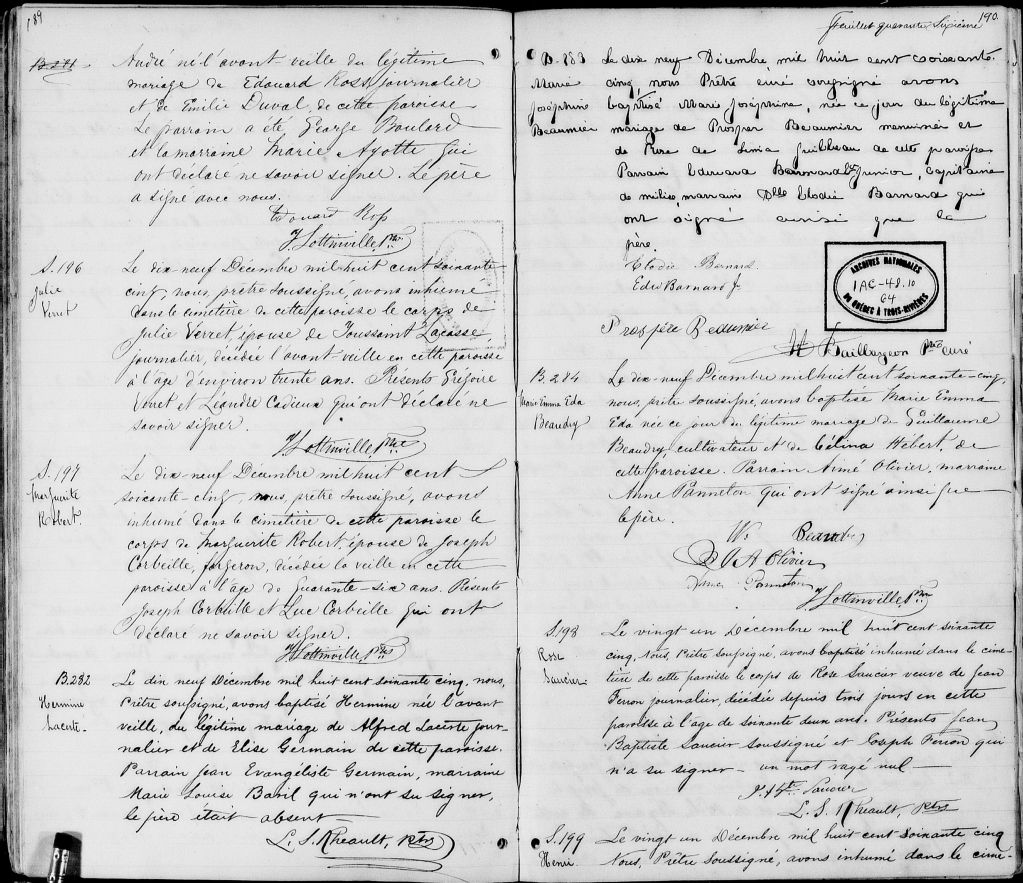 189
B.281
André né l'avant veille du légitime
mariage de Edouard Ross, journalier
et de Emilie Duval, de cette paroisse
Le parrain a été, George Boulard
et la marraine Marie Ayotte qui
ont déclaré ne savoir signer. Le père
a signé avec nous.
Edouard Ross
H Lottinville, Ptre
S. 196
Julie
Verret
Le dix-neuf Décembre mil huit cent soixante-
cinq, nous, prêtre soussigné, avons inhumé
dans le cimetière de cette paroisse le corps de
Julie Verret, épouse de Toussaint Lacasse
journalier, décédée l'avant veille en cette paroisse
à l'âge d'environ trente ans. Présents Grégoire
Verret et Léandre Cadieux qui ont déclaré ne
savoir signer.
H Lottinville, Ptre
S. 197
Marguerite
Robert.
Le dix-neuf Décembre mil huit cent
soixante-cinq, nous, prêtre soussigné, avons
inhumé dans le cimetière de cette paroisse le
corps de Marguerite Robert, épouse de Joseph
Corbeille, forgeron, décédée la veille en cette
paroisse à l'âge de quarante-six ans. Présents
Joseph Corbeille et Luc Corbeille qui ont
déclaré ne savoir signer.
H Lottinville, Ptre
B.282
Hermine
Lacerte.
Le dix neuf Décembre mil huit cent soixante cinq, nous,
Prêtre soussigné, avons baptisé Hermine née l'avant
veille, du légitime mariage de Alfred Lacerte jour-
nalier et de Elise Germain de cette paroisse.
Parrain Jean Evangéliste Germain, marraine
Marie Louise Baril qui n'ont su signer,
le père était absent
L. S. Rheault, Ptre
190.
Feuillet quarante Sixième
B. 283
Marie
Joséphine
Beaumier
Le dix neuf Décembre mil huit cent soixante
cinq, nous Prêtre curé soussigné avons
baptisé Marie Joséphine, née ce jour du légitime
mariage de Prosper Beaumier menuisier et
de Rose de Lima Guilbeau de cette paroisse
Parrain Edouard Barnard Junior, Capitaine
de milice, marraine Dlle Elodie Barnard qui
ont signé ainsi que le
père.
Elodie Barnard
Edw Barnard Jr
ARCHIVES NATIONALES
1AC-48.10
64
DU QUÉBEC À TROIS-RIVIÈRES
Prospère Beaumier
H Baillargeon Ptre curé
B. 284
Marie Emma Eda
Beaudry
Le dix-neuf Décembre mil huit cent soixante-cinq,
nous, prêtre soussigné, avons baptisé Marie Emma
Eda née ce jour du légitime mariage de Guillaume
Beaudry cultivateur et de Célina Hébert, de
cette paroisse. Parrain Aimé Olivier, marraine
Anne Panneton qui ont signé ainsi que
le père.
W. Beaudry
A Olivier
Anne Panneton
H Lottinville, Ptre
S. 198
Rose
Saucier.
Le vingt un Décembre mil huit cent soixante
cinq, Nous, Prêtre soussigné, avons baptisé inhumé dans le cime-
tière de cette paroisse le corps de Rose Saucier veuve de Jean
Ferron journalier, décédée depuis trois jours en cette
paroisse à l'âge de soixante deux ans. Présents Jean
Baptiste Saucier soussigné et Joseph Ferron qui
n'a su signer - un mot rayé nul -
J Bte Saucier
L. S. Rheault, Ptre
S. 199
Henri
Le vingt un Décembre mil huit cent soixante cinq
Nous, Prêtre soussigné, avons inhumé dans le cime-